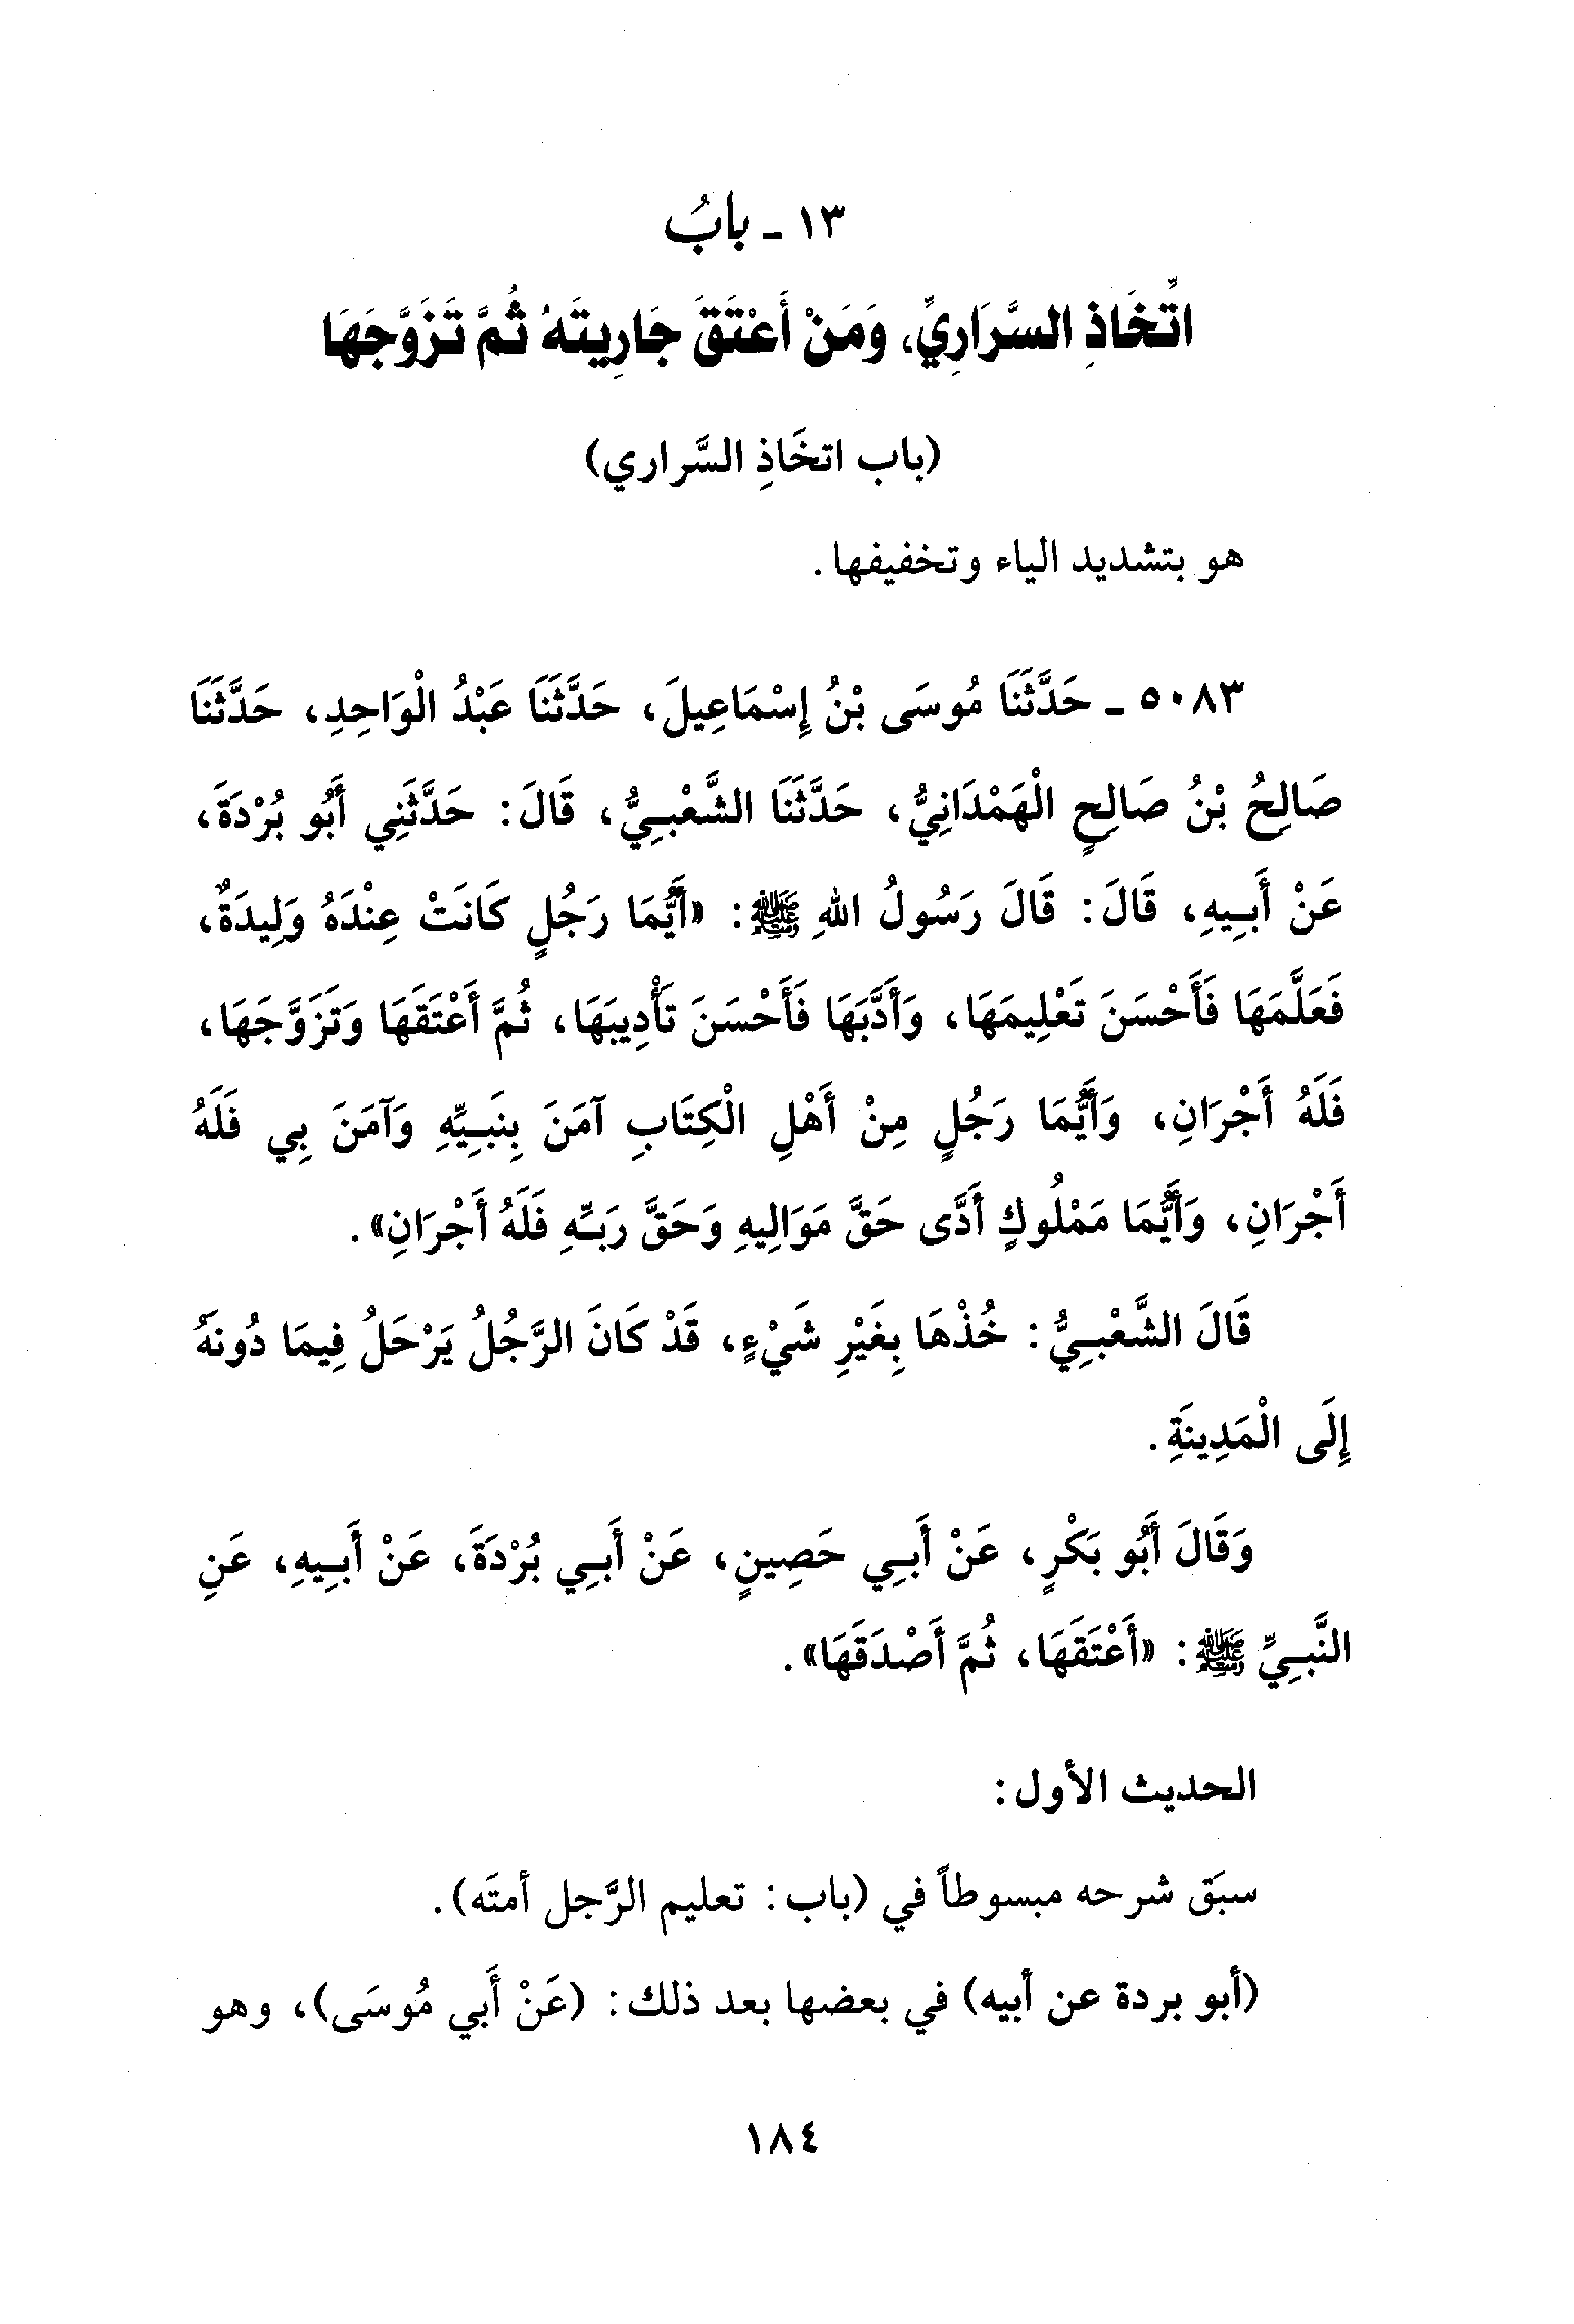 ١٣ - بابُ
اتِّخَاذِ السَّرَارِيِّ، وَمَنْ أَعْتَقَ جَارِيتَهُ ثُمَّ تَزَوَّجَهَا
(باب اتخَاذِ السَّراري)
هو بتشديد الياء وتخفيفها.
٥٠٨٣ - حَدَّثَنَا مُوسَى بْنُ إِسْمَاعِيلَ، حَدَّثَنَا عَبْدُ الْوَاحِدِ، حَدَّثَنَا
صَالِحُ بْنُ صَالِحٍ الْهَمْدَانِيُّ، حَدَّثَنَا الشَّعْبِيُّ، قَالَ: حَدَّثَنِي أَبُو بُرْدَةَ،
عَنْ أَبِيهِ، قَالَ: قَالَ رَسُولُ اللهِ ﷺ: «أَيُّمَا رَجُلٍ كَانَتْ عِنْدَهُ وَلِيدَةٌ،
فَعَلَّمَهَا فَأَحْسَنَ تَعْلِيمَهَا، وَأَدَّبَهَا فَأَحْسَنَ تَأْدِيبَهَا، ثُمَّ أَعْتَقَهَا وَتَزَوَّجَهَا،
فَلَهُ أَجْرَانِ، وَأَيُّمَا رَجُلٍ مِنْ أَهْلِ الْكِتَابِ آمَنَ بِنَبِيِّهِ وَآمَنَ بِي فَلَهُ
أَجْرَانِ، وَأَيُّمَا مَمْلُوكٍ أَدَّى حَقَّ مَوَالِيهِ وَحَقَّ رَبِّهِ فَلَهُ أَجْرَانِ».
قَالَ الشَّعْبِيُّ: خُذْهَا بِغَيْرِ شَيْءٍ، قَدْ كَانَ الرَّجُلُ يَرْحَلُ فِيمَا دُونَهُ
إِلَى الْمَدِينَةِ.
وَقَالَ أَبُو بَكْرٍ، عَنْ أَبِي حَصِينٍ، عَنْ أَبِي بُرْدَةَ، عَنْ أَبِيهِ، عَنِ
النَّبِيِّ ﷺ: «أَعْتَقَهَا، ثُمَّ أَصْدَقَهَا».
الحديث الأول:
سبَق شرحه مبسوطاً في (باب: تعليم الرَّجل أمتَه).
(أبو بردة عن أبيه) في بعضها بعد ذلك: (عَنْ أَبي مُوسَى)، وهو
١٨٤